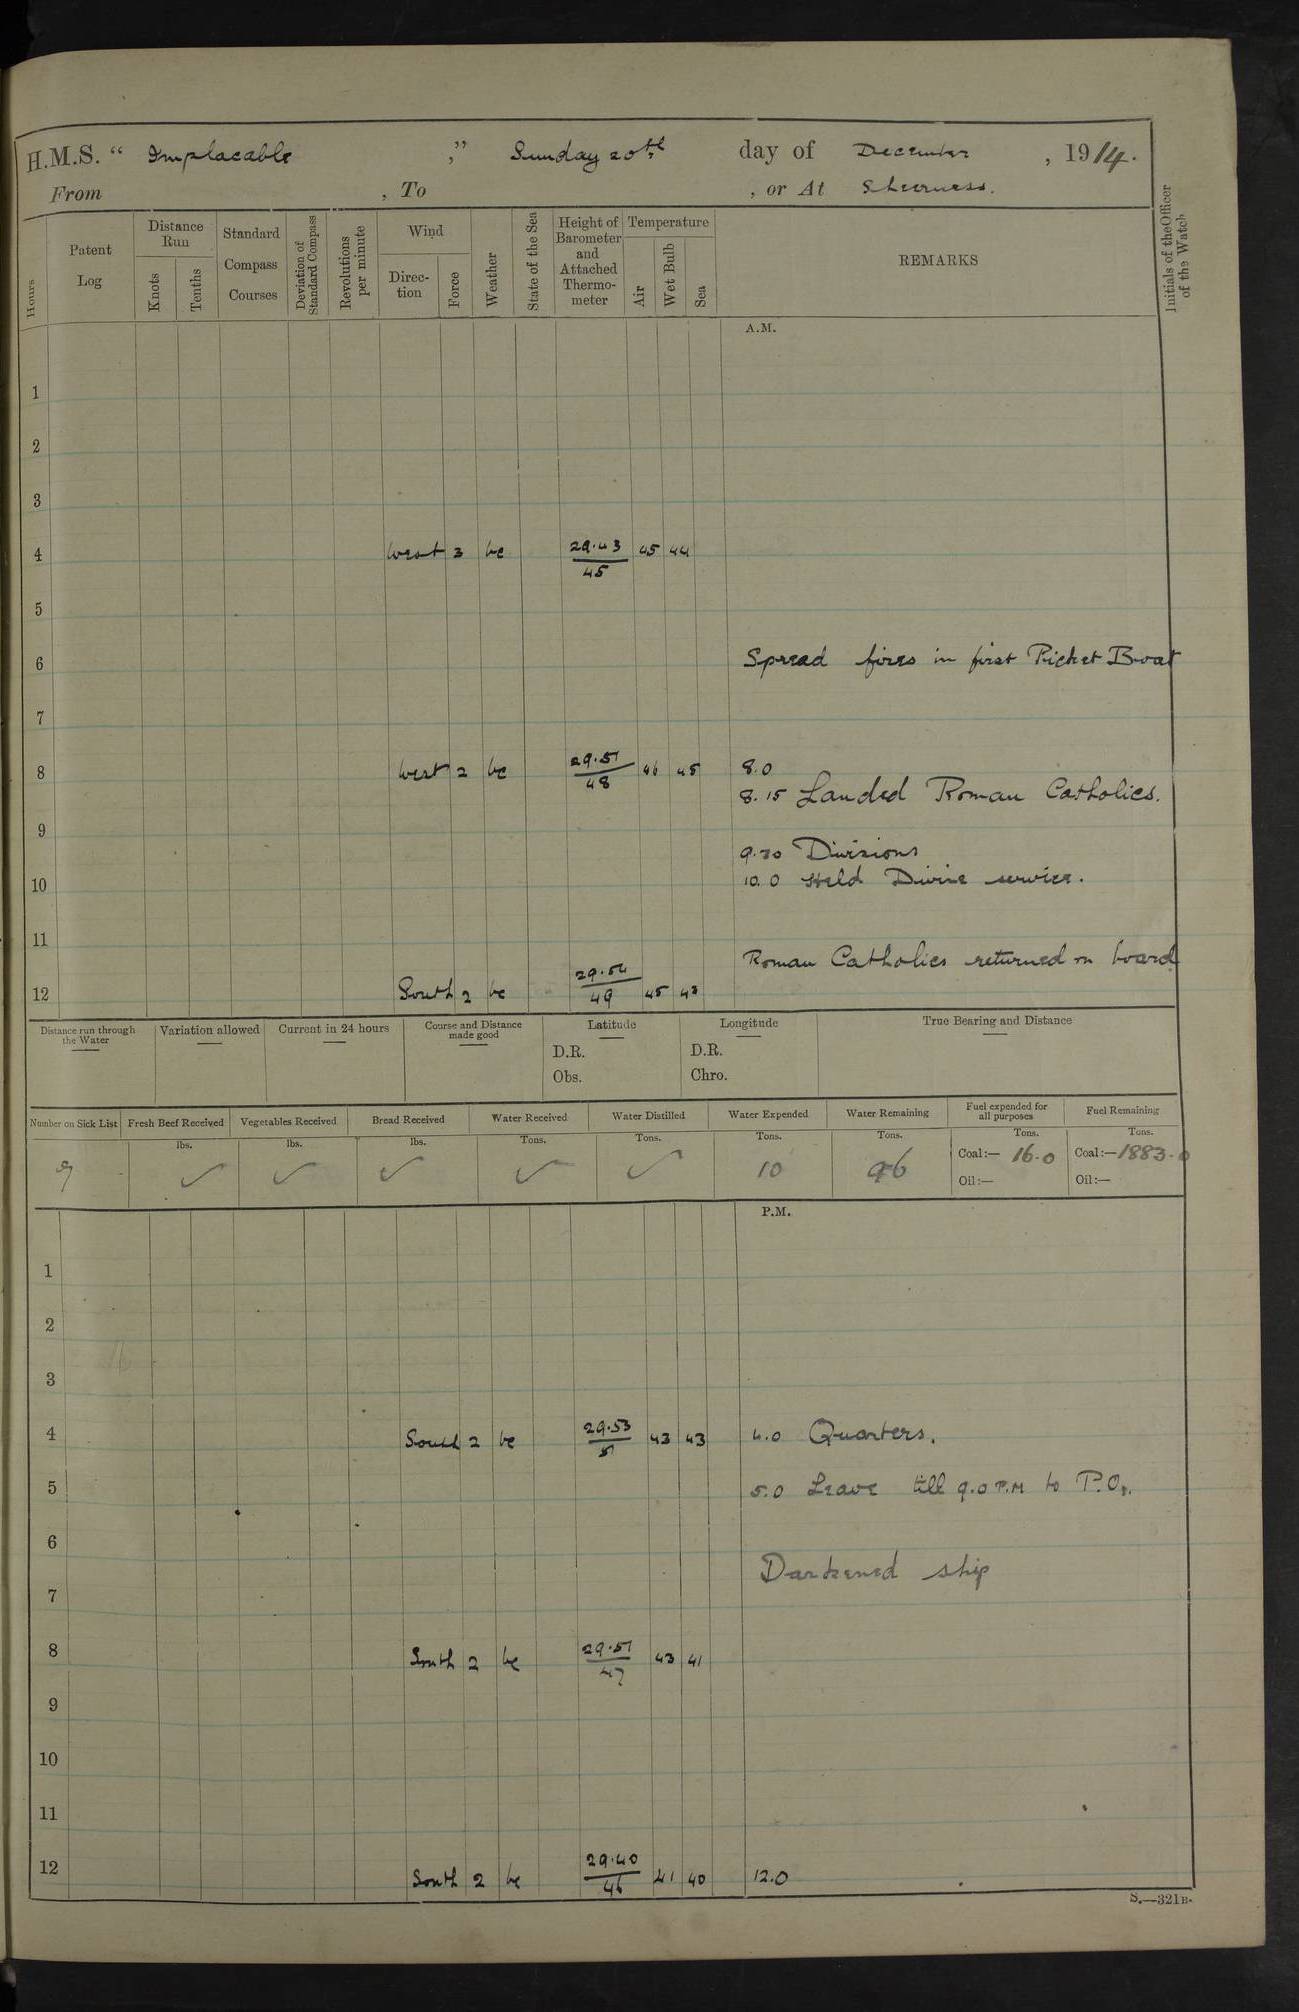 H.M.S. “ Implacable ,” Sunday 20th day of December , 1914.
From , To , or At Sheerness.
Hours
Patent Log
Distance Run
Knots
Tenths
Standard Compass Courses
Deviation of Standard Compass
Revolutions per minute
Wind
Direc-tion
Force
Weather
State of the Sea
Height of Barometer and Attached Thermo-meter
Temperature
Air
Wet Bulb
Sea
REMARKS
Initials of the Officer of the Watch
A.M.
1
2
3
4 West 3 bc 29.43 45 45 44
5
6 Spread fires in first Picket Boat
7
8 West 2 bc 29.51 48 46 45 8.0
8.15 Landed Roman Catholics.
9
9.30 Divisions
10 10.0 Held Divine service.
11
Roman Catholics returned on board
12 South 2 bc 29.54 49 45 43
Distance run through the Water
Variation allowed
Current in 24 hours
Course and Distance made good
Latitude
D.R.
Obs.
Longitude
D.R.
Chro.
True Bearing and Distance
Number on Sick List
Fresh Beef Received
Vegetables Received
Bread Received
Water Received
Water Distilled
Water Expended
Water Remaining
Fuel expended for all purposes
Fuel Remaining
lbs. lbs. lbs. Tons. Tons. Tons. Tons. Tons. Tons.
9 ✓ ✓ ✓ ✓ ✓ 10 96 Coal:— 16.0 Coal:—1883.0
Oil:— Oil:—
P.M.
1
2
3
4 South 2 bc 29.53 51 43 43 4.0 Quarters.
5 5.0 Leave till 9.0 P.M to P.Os.
6
Darkened ship
7
8 South 2 bc 29.51 47 43 41
9
10
11
12 South 2 bc 29.40 46 41 40 12.0
S.—321B.